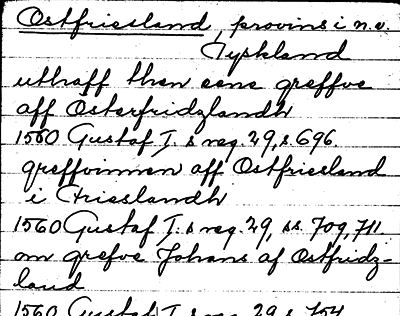 Ostfriesland, provins i n.v.
Tyskland
uthaff then ene greffve
aff Osterfridzlandh
1560 Gustaf I. s reg. 29, s 696.
greffvinnen aff Ostfriesland
i Friesslandh
1560 Gustaf I. s reg. 29, ss. 709, 711.
om grefve Johans af Ostfridz-
land
1560 Gustaf I s reg. 29 s 754